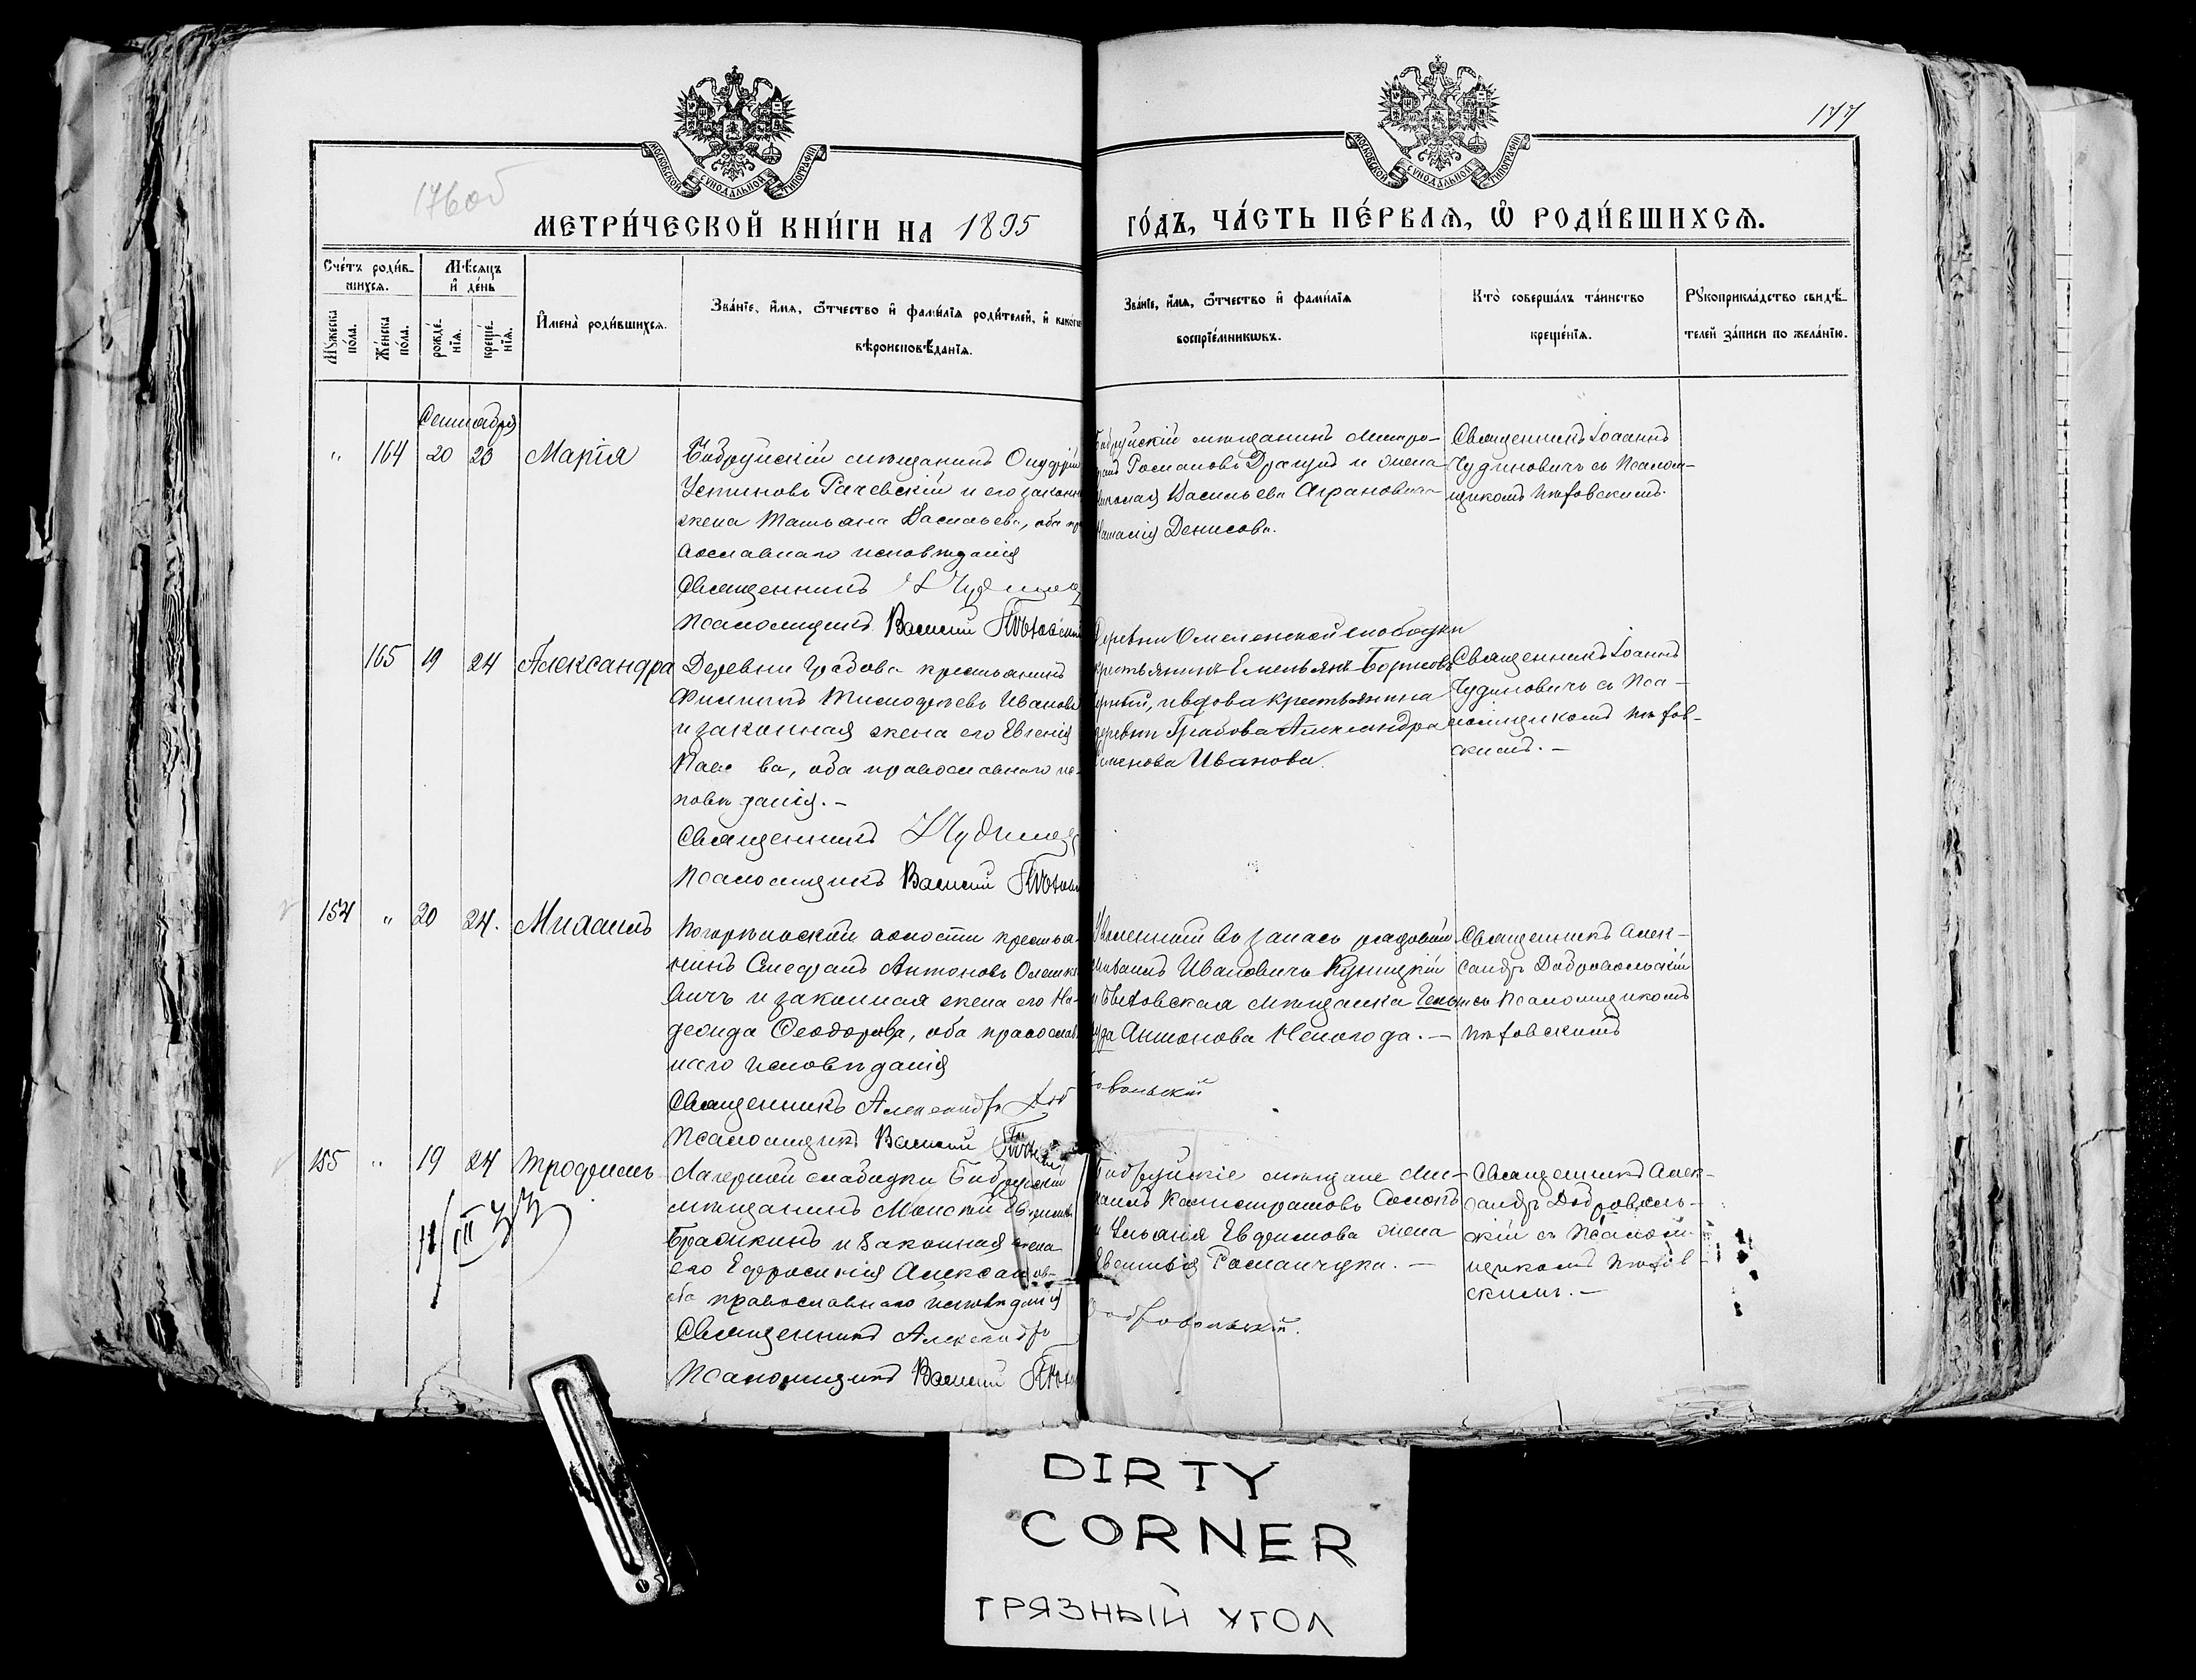 177
176об
МОСКОВСКОЙ СУНОДАЛЬНОЙ ТИПОГРАФІИ
МОСКОВСКОЙ СУНОДАЛЬНОЙ ТИПОГРАФІИ
МЕТРИ́ЧЕСКОЙ КНИ́ГИ НА 1895
ГО́ДЪ, ЧА́СТЬ ПЕ́РВАѦ, Ѿ РОДИ́ВШИХСѦ.
Сче́тъ роди́в-
шихсѧ.
Мѣ́сѧцъ
и҆ де́нь
Мꙋ́жеска
по́ла.
Же́нска
по́ла.
рожде́-
нїѧ.
креще́-
нїѧ.
И҆мена̀ роди́вшихсѧ.
Зва́нїе, и҆́мѧ, ѻ҆́тчество и҆ фами́лїѧ роди́телей, и҆ како́гѡ
вѣроисповѣ́данїѧ.
Зва́нїе, и҆́мѧ, ѻ҆́тчество и҆ фами́лїѧ
воспрїе́мникѡвъ.
Кто̀ соверша́лъ та́инство
креще́нїѧ.
Рꙋкоприкла́дство свидѣ́-
телей за́писи по жела́нїю.
Сентября
" 164 20 23 Марія
Бобруйскій мѣщанинъ Онуфрій
Устиновъ Рачевскій и его законн
жена Татьяна Васильева, оба пр
вославнаго исповѣданія
Священникъ
Псаломщикъ Василій
Бобруйскій мѣщанинъ Митро-
Романовъ и жена
Василіева
Наталія Денисова.
Священникъ Іоаннъ
Чудиновичъ съ Псалом-
щикомъ
165 19 24 Александра
Деревни Грабова крестьянинъ
Филиппъ Тимофеевъ Ивановъ
и законная жена его Евгенія
ва, оба православнаго ис-
повѣданія.-
Священникъ
Псаломщикъ Василій
Деревни Омеленской слободки
крестьянинъ Емельянъ Борисовъ
, и вдова крестьянина
деревни Грабова Александра
Семенова Иванова.
Священникъ Іоаннъ
Чудиновичъ съ Пса-
ломщикомъ
скимъ.-
154 " 20 24. Михаилъ
волости крестья-
нинъ Стефанъ Антоновъ Олешке
вичъ и законная жена его На-
дежда Феодорова, оба православ
наго исповѣданія
Священникъ Александръ Доб
ровольскій
Псаломщикъ Василій
Уволенный въ запасъ рядовой
Ивановичъ Куницкій
мѣщанка
Антонова Непогода.-
Священникъ Алек-
сандръ Добровольскій
съ Псаломщикомъ
155 " 19 24 Трофимъ
11/III
Лагерной слободки Бобруйскій
мѣщанинъ Моисей
и законная жена
его Ефросинія Алексан ов-
оба православнаго исповѣданія
Священникъ Александръ
Добровольскій.
Псаломщикъ Василій
Бобруйскіе мѣщане Ми-
хаилъ Калистратовъ
и Ульянія Евфимова жена
Романчука.-
Священникъ Алек-
сандръ Доброволь-
скій съ Псалом-
щикомъ
скимъ.-
DIRTY
CORNER
ГРЯЗНЫЙ УГОЛ